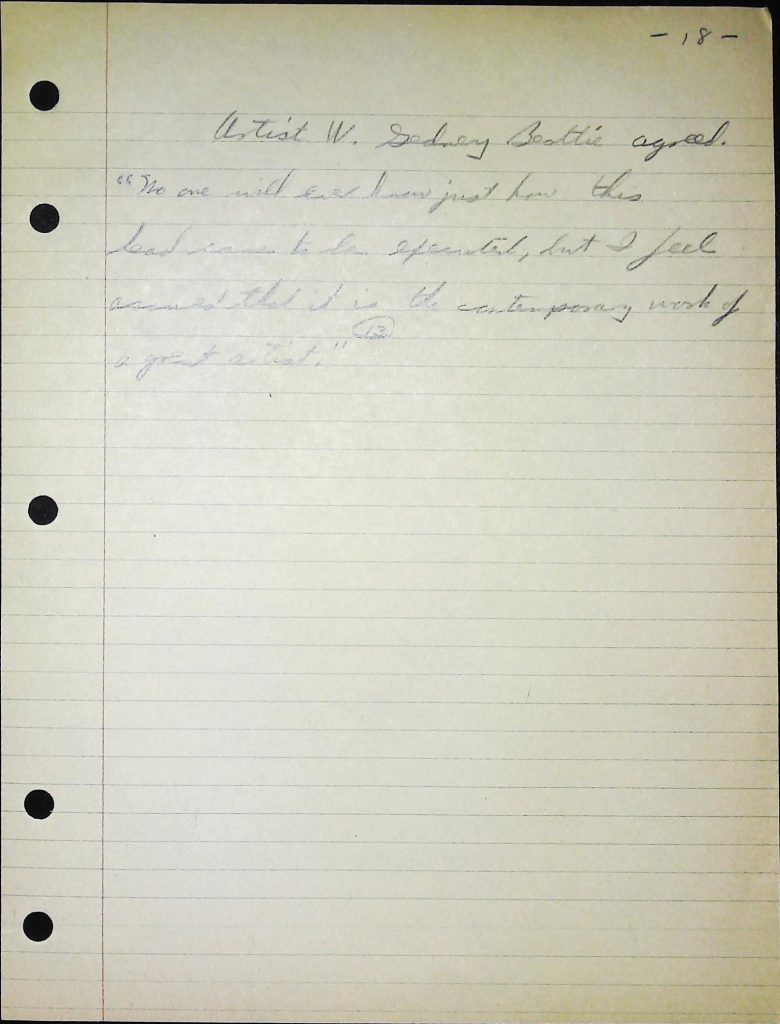 - 18 -
Artist W. Gedney Beattie agreed.
"No one will ever know just how this
head came to be executed, but I feel
assured that it is the contemporary work of
a great artist." 13